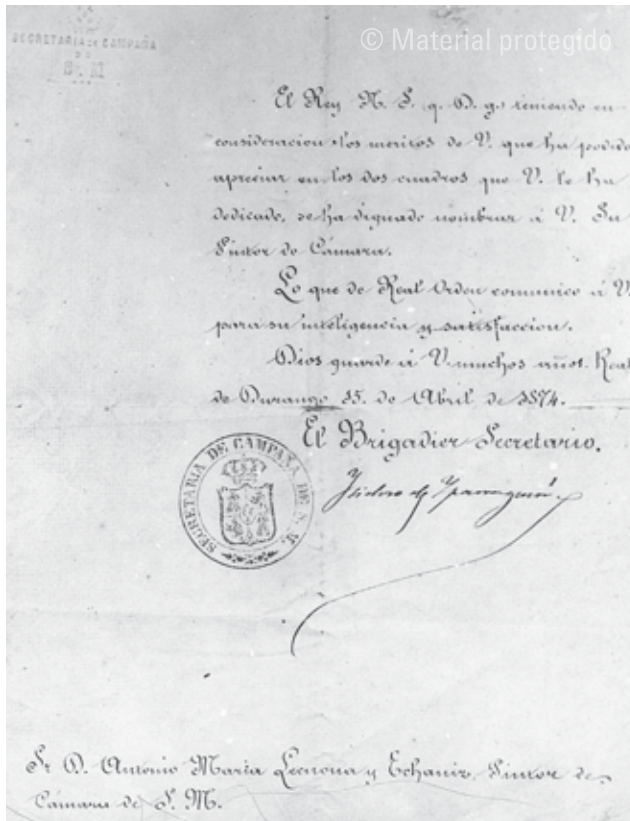 © Material protegido
SECRETARIA DE CAMPAÑA
DE
S. M.
El Rey N. S. q. D. g. teniendo en
consideracion los meritos de V. que ha podido
apreciar en los dos cuadros que V. le ha
dedicado, se ha dignado nombrar á V. Su
Pintor de Cámara.
Lo que de Real Orden comunico á V.
para su inteligencia y satisfaccion.
Dios guarde á V. muchos años. Real
de Durango 15. de Abril de 1874.
El Brigadier Secretario.
SECRETARIA DE CAMPAÑA DE S. M.
Isidoro de Yparraguirre
Sr D. Antonio María Lecuona y Echaniz. Pintor de
Cámara de S. M.